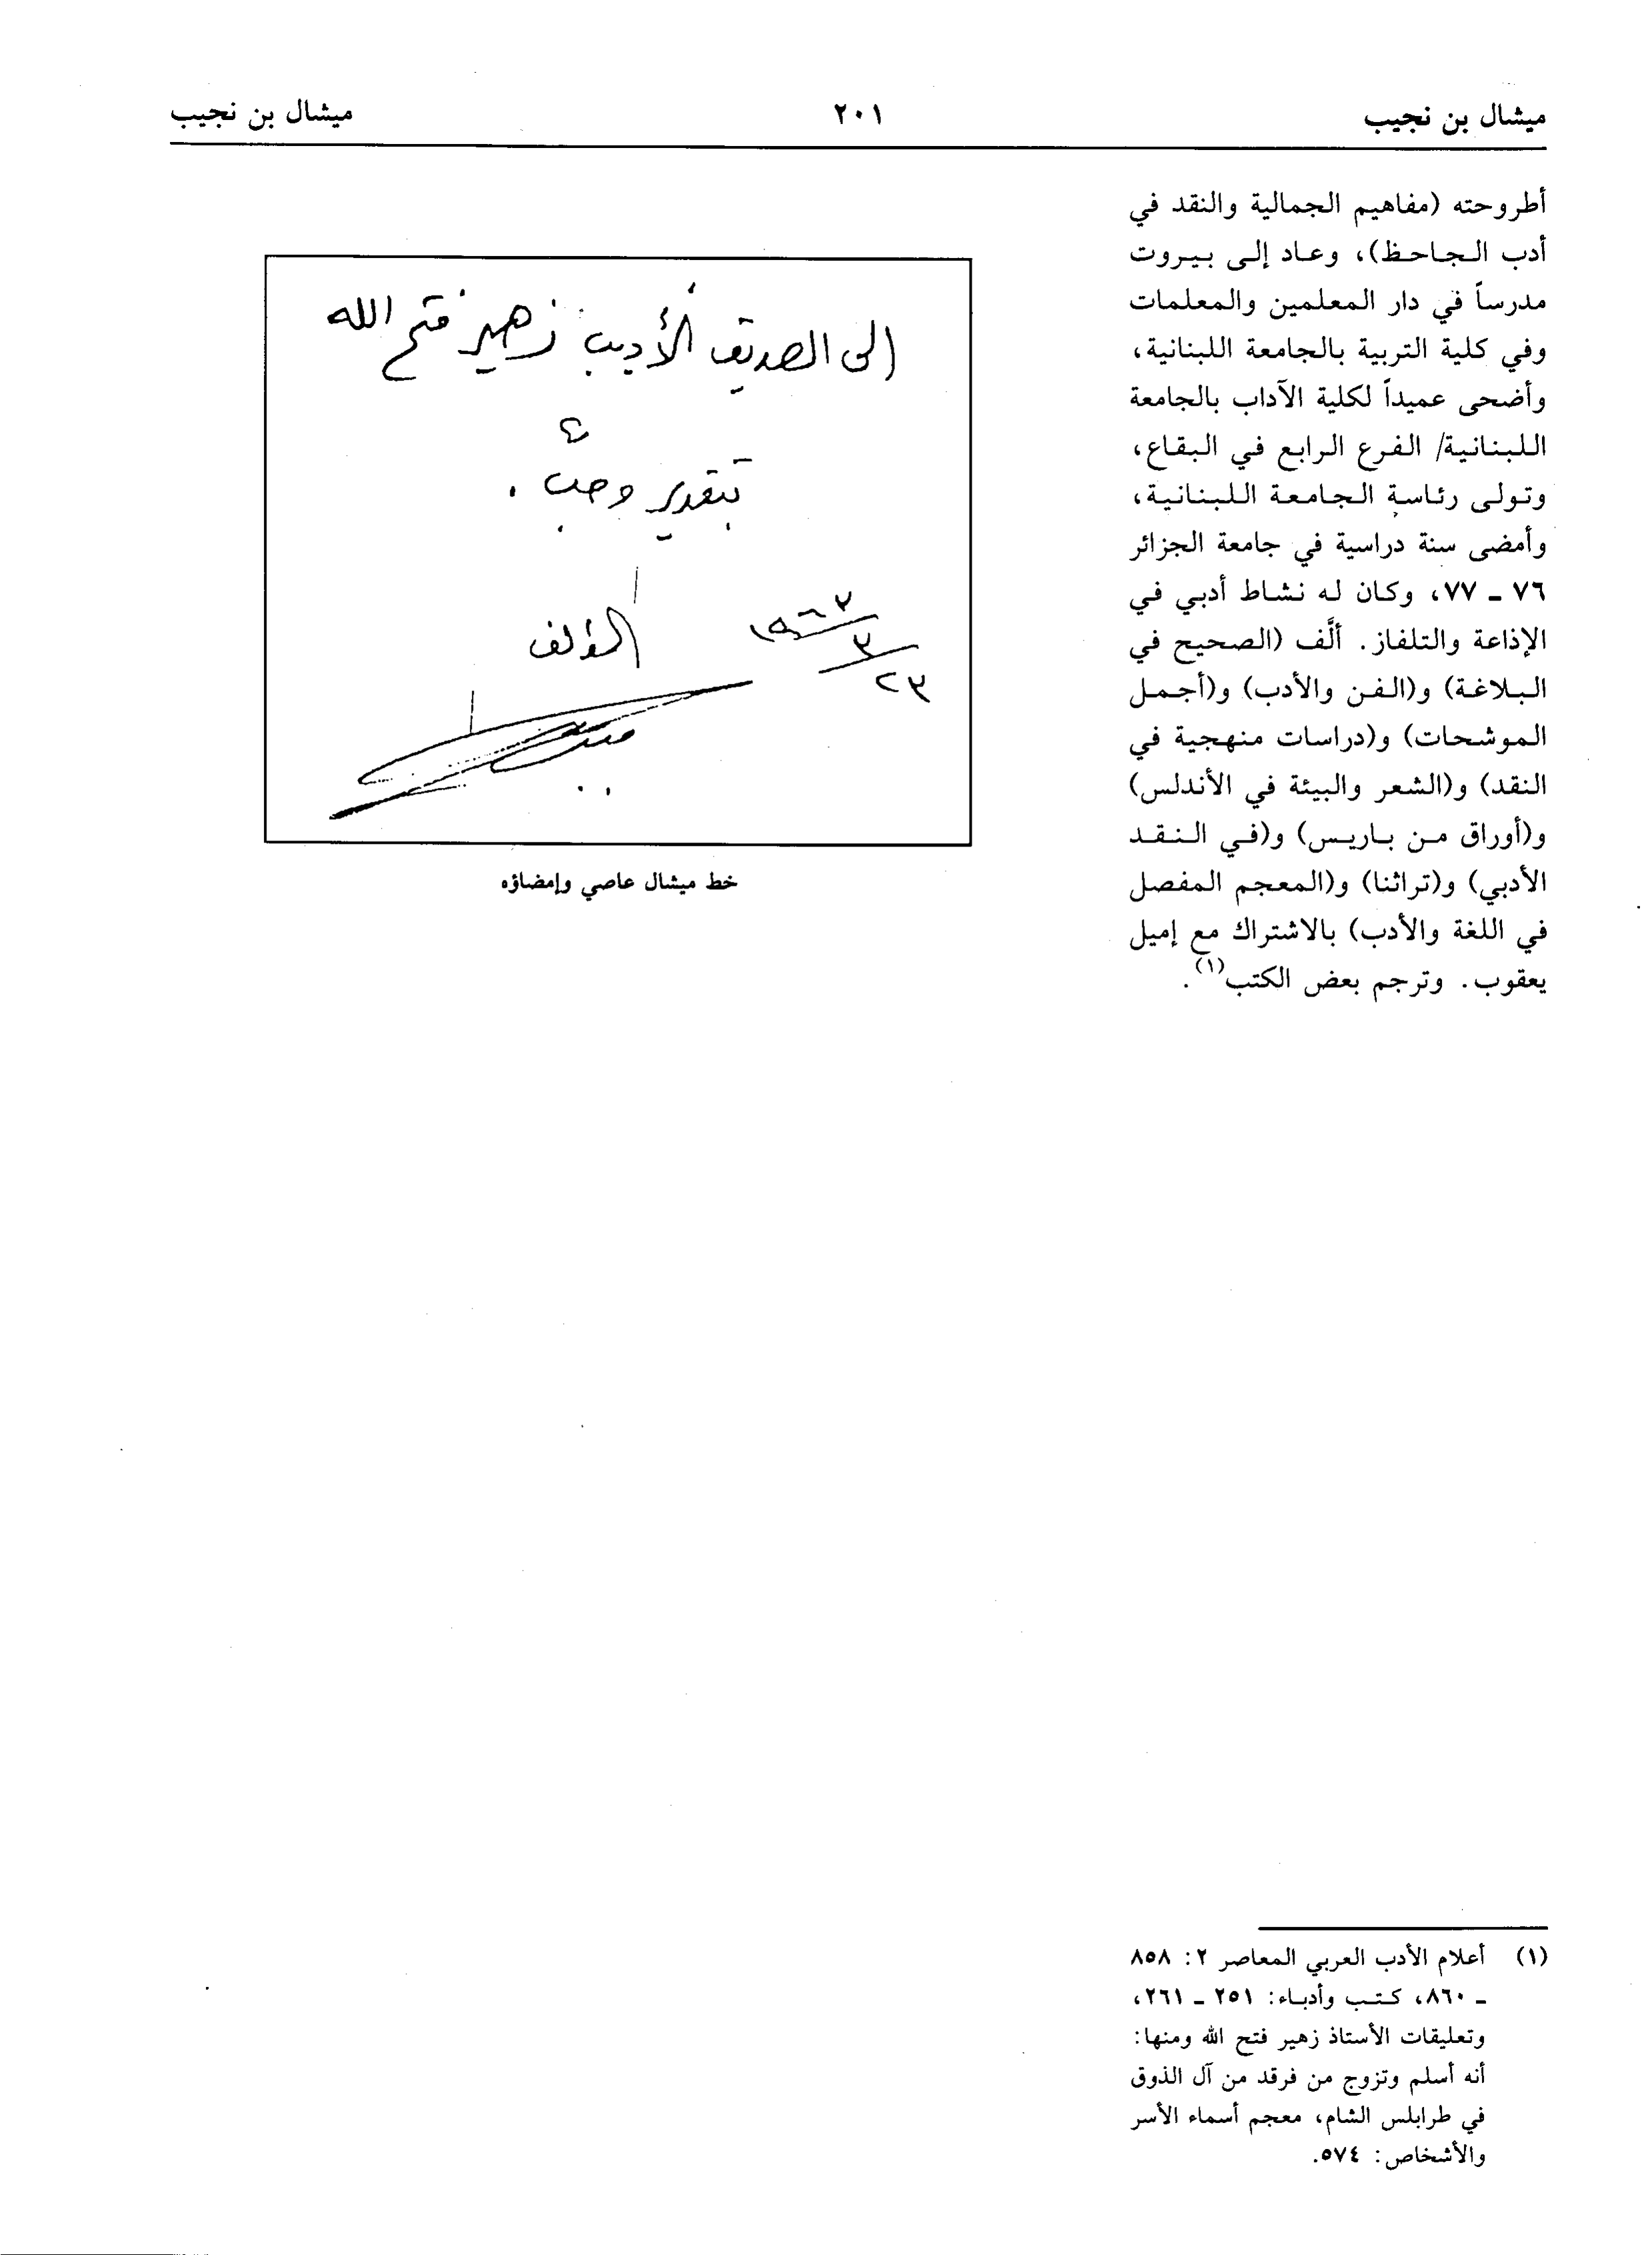 ميشال بن نجيب
٢٠١
ميشال بن نجيب
أطروحته (مفاهيم الجمالية والنقد في
أدب الجاحظ)، وعاد إلى بيروت
مدرساً في دار المعلمين والمعلمات
وفي كلية التربية بالجامعة اللبنانية،
وأضحى عميداً لكلية الآداب بالجامعة
اللبنانية/ الفرع الرابع في البقاع،
وتولى رئاسة الجامعة اللبنانية،
وأمضى سنة دراسية في جامعة الجزائر
٧٦ - ٧٧، وكان له نشاط أدبي في
الإذاعة والتلفاز. ألَّف (الصحيح في
البلاغة) و(الفن والأدب) و(أجمل
الموشحات) و(دراسات منهجية في
النقد) و(الشعر والبيئة في الأندلس)
و(أوراق من باريس) و(في النقد
الأدبي) و(تراثنا) و(المعجم المفصل
في اللغة والأدب) بالاشتراك مع إميل
يعقوب. وترجم بعض الكتب(١).
إلى الصديق الأديب زهير فتح الله
بتقدير وحب.
المؤلف
خط ميشال عاصي وإمضاؤه
(١) أعلام الأدب العربي المعاصر ٢: ٨٥٨
- ٨٦٠، كتب وأدباء: ٢٥١ - ٢٦١،
وتعليقات الأستاذ زهير فتح الله ومنها:
أنه أسلم وتزوج من فرقد من آل الذوق
في طرابلس الشام، معجم أسماء الأسر
والأشخاص: ٥٧٤.